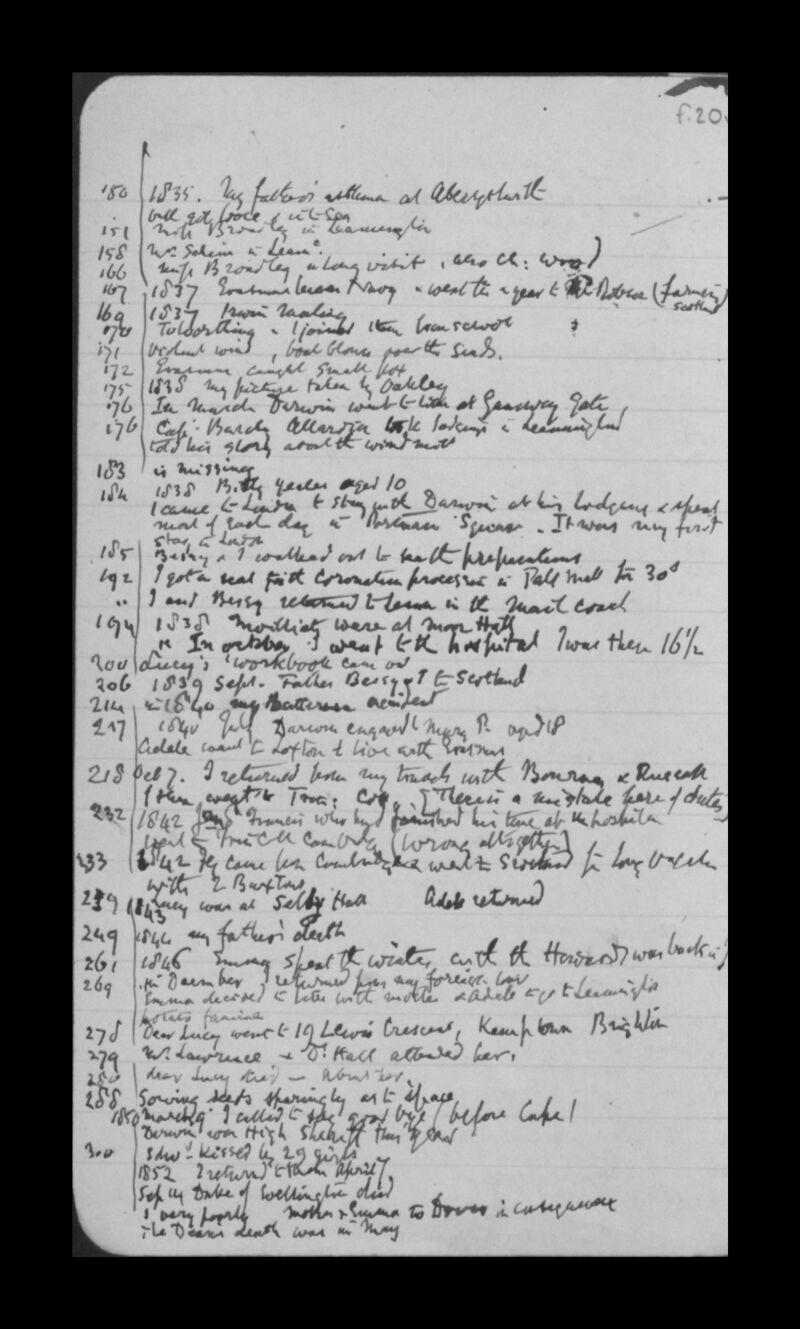 f.20
150 1835. My father's asthma at Aberystwith
151 Miss Broadley in Leamington
158 Mrs in Leam.
166 Miss Broadley a long visit, also Ch: Wood)
167 1837 Erasmus Navy & went the year to (farming)
Scotland
169 1837
170 To Worthing & I joined them from school
171 Violent wind, boat blown over the Sands.
172 Erasmus caught small pox
175 1838 My picture taken by Oakley
176 In March Darwin went to live at Gate
176 Capt. Barclay Allardice took lodgings in Leamington
told his story about the wind mill
183 is missing
184 1838 aged 10
I came to London to stay with Darwin at his lodgings & spent
most of each day in Portman Square. It was my first
stay in London
185 Bessy & I walked out to see the preparations
192 I got a seat for the Coronation procession in Pall Mall for 30s
" I and Bessy returned to in the Mail coach
194 1838 were at Moor Hall
" In October I went to the hospital I was then 16½
200 Lucy's workbook came
206 1839 Sept. Father Bessy & I to Scotland
214 in 1840 my accident
217 1840 July Darwin engaged to Mary aged 18
Adele went to Loxton to live with Erasmus
218 Oct 7. I returned from my travels with &
I then went to Trin: Coll. [There is a mistake here of dates]
232 1842 Francis who had finished his time at the hospital
went to Trin Coll Cambridge (wrong altogether)
233 1842 He came from Cambridge & went to Scotland for Long Vacation
with 2 Buxtons
239 1843 Lucy was at Selby Hall Adele returned
249 1844 my father's death
261 1846 Emma spent the winter with the Howards I was back in
269 in December I returned from my foreign tour
Emma decided to live with mother & Adele to go to Leamington
potato famine
278 Dear Lucy went to 19 Lewis Crescent, Kemptown Brighton
279 Mr. Lawrence & Dr. Hall attended her.
280 dear Lucy died — about her.
288 Sowing seeds sparingly as to space
1850 March 9 I called to say good bye before Cape!
Darwin was High Sheriff this year
300 Edw. kissed by 29 girls
1852 I returned to them April 7
Sep 14 Duke of Wellington died
I very poorly Mother & Emma to Dover in consequence
The Dean's death was in May